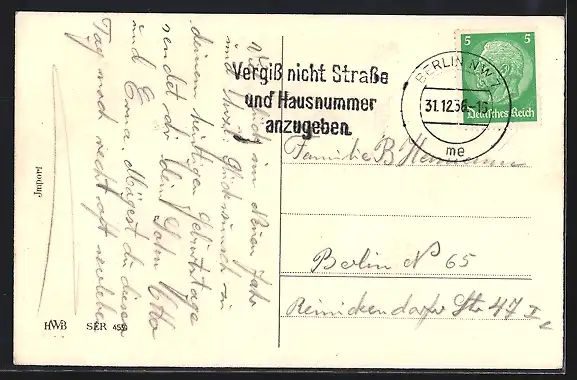 Vergiß nicht Straße
und Hausnummer
anzugeben.
BERLIN NW 7
31.12.36.-16
me
5 5
Deutsches Reich
im Neuen Jahr
und Glückwunsch zu
deinem heutigen Geburtstage
sendet dir dein Sohn Otto
und Erna. Mögest du diesen
Tag noch recht oft verleben
Familie B
Berlin N 65
Reinickendorfer Str 47 I
Import
HWB SER 455